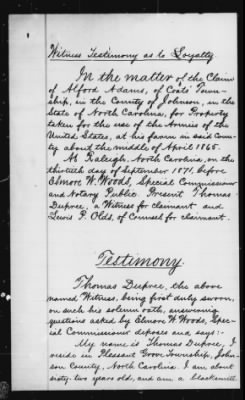 Witness Testimony as to Loyalty
In the matter of the Claim
of Alford Adams, of Coats' Town-
ship, in the County of Johnson, in the
State of North Carolina, for Property
taken for the use of the Armies of the
United States, at his farm in said Coun-
ty about the middle of April 1865.
At Raleigh, North Carolina, on the
thirtieth day of September 1871, before
Elmore W. Woods, Special Commissioner
and Notary Public Present Thomas
Dupree, a Witness for claimant and
Lewis P. Olds, of Counsel for claimant.
Testimony.
Thomas Dupree, the above
named Witness, being first duly sworn,
on such his solemn oath, answering
questions asked by Elmore W. Woods, Spe-
cial Commissioner deposes and says:-
My name is Thomas Dupree, I
reside in Pleasant Grove Township, John-
son County, North Carolina. I am about
sixty two years old, and am a blacksmith